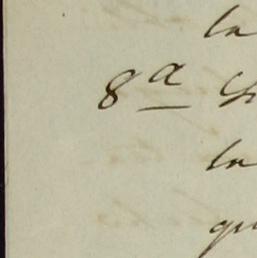 la
8ª
la
qu